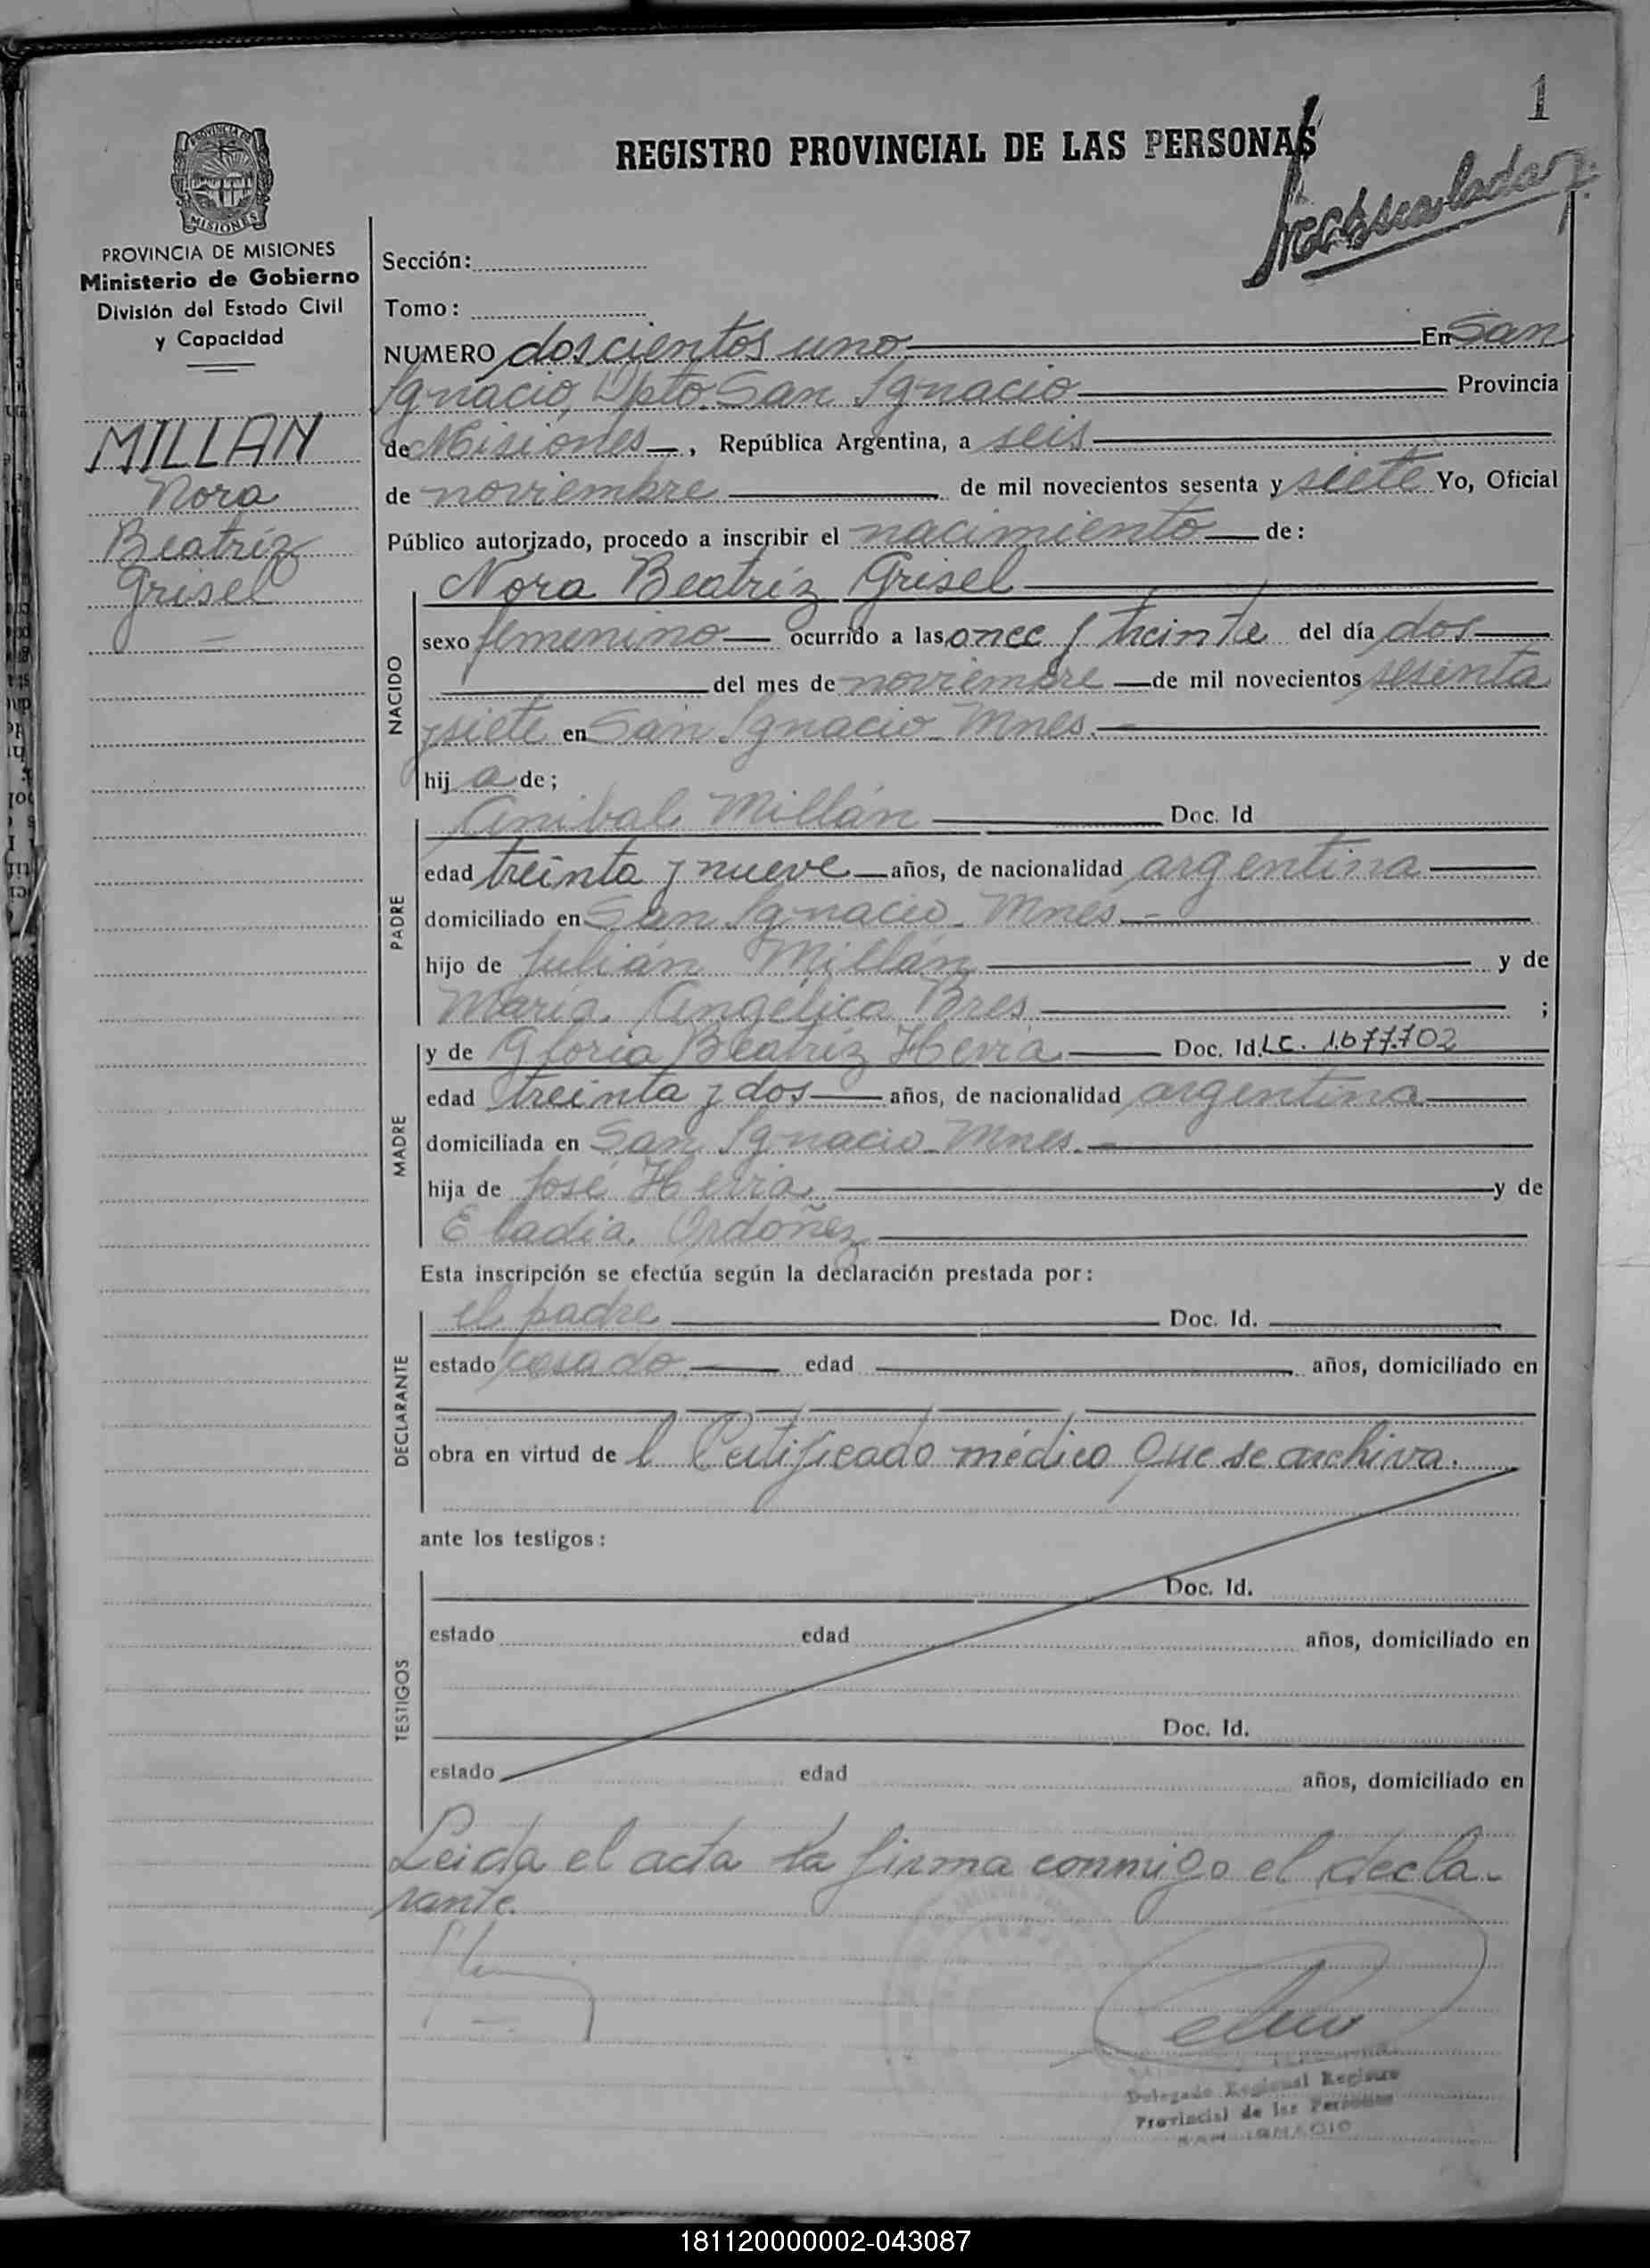 1
REGISTRO PROVINCIAL DE LAS PERSONAS
PROVINCIA DE MISIONES
MISIONES
PROVINCIA DE MISIONES
Ministerio de Gobierno
División del Estado Civil
y Capacidad
MILLAN
Nora
Beatríz
Grisel
Sección:
Tomo:
NUMERO doscientos uno En San
Ignacio, Dpto. San Ignacio Provincia
de Misiones, República Argentina, a seis
de noviembre de mil novecientos sesenta y siete Yo, Oficial
Público autorizado, procedo a inscribir el nacimiento de:
NACIDO
Nora Beatríz Grisel
sexo femenino ocurrido a las once y treinta del día dos
del mes de noviembre de mil novecientos sesenta
y siete en San Ignacio - Mnes. -
hij a de;
PADRE
Anibal Millán Doc. Id
edad treinta y nueve años, de nacionalidad argentina
domiciliado en San Ignacio - Mnes. -
hijo de Julián Millán y de
María Angélica Bres ;
MADRE
y de Gloria Beatríz Hevia Doc. Id. L.C. 1.677.702
edad treinta y dos años, de nacionalidad argentina
domiciliada en San Ignacio - Mnes. -
hija de José Hevia y de
Eladia Ordoñez
Esta inscripción se efectúa según la declaración prestada por:
DECLARANTE
el padre Doc. Id.
estado casado edad años, domiciliado en
obra en virtud de l Certificado médico que se archiva.
ante los testigos:
TESTIGOS
Doc. Id.
estado edad años, domiciliado en
Doc. Id.
estado edad años, domiciliado en
Leida el acta la firma conmigo el decla-
rante.
Delegado Regional Registro
Provincial de las Personas
SAN IGNACIO
181120000002-043087